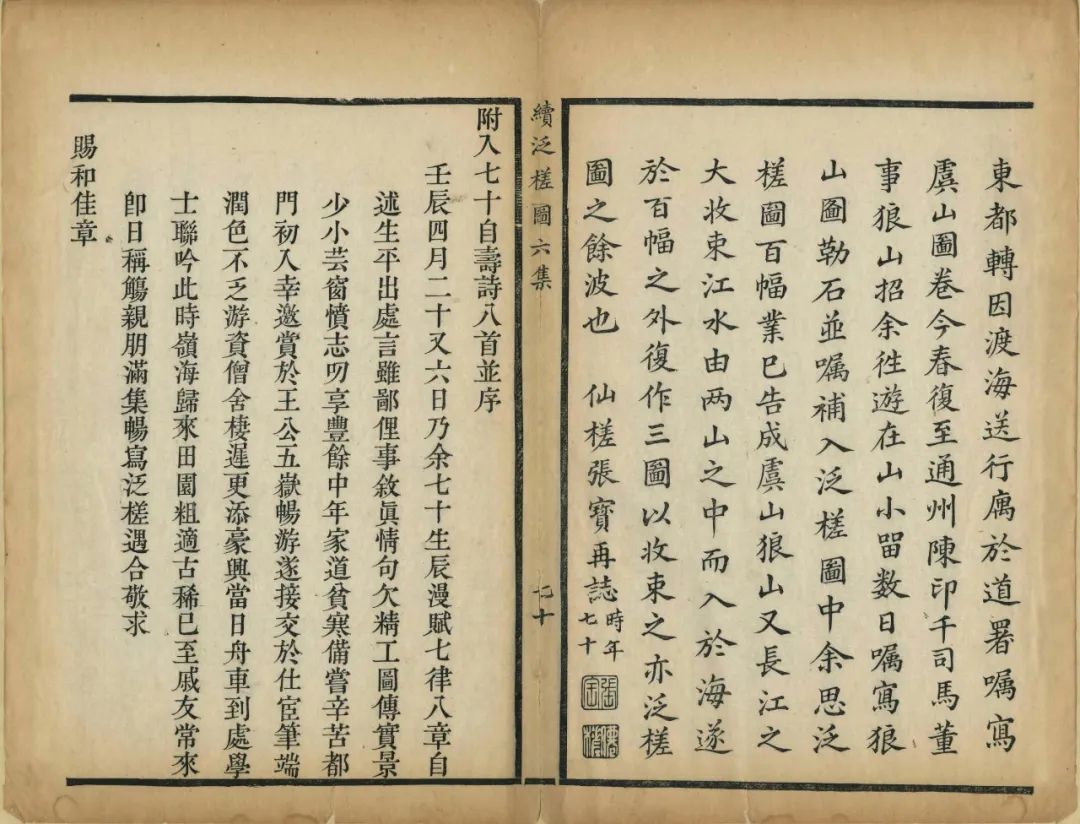 東都轉因渡海送行厲於道署嘱寫
虞山圖卷今春復至通州陳印千司馬董
事狼山招余徃遊在山小畱数日嘱寫狼
山圖勒石並嘱補入泛槎圖中余思泛
槎圖百幅業已告成虞山狼山又長江之
大收束江水由两山之中而入於海遂
於百幅之外復作三圖以收束之亦泛槎
圖之餘波也 仙槎張寶再誌 時年七十
續泛槎圖六集 七十
附入七十自壽詩八首並序
壬辰四月二十又六日乃余七十生辰漫賦七律八章自
述生平出處言雖鄙俚事敘眞情句欠精工圖傳實景
少小芸窗憤志叨享豐餘中年家道貧寒備嘗辛苦都
門初入幸邀賞於王公五嶽暢游遂接交於仕宦筆端
潤色不乏游資僧舍棲遲更添豪興當日舟車到處學
士聯吟此時嶺海歸來田園粗適古稀已至戚友常來
卽日稱觴親朋滿集暢寫泛槎遇合敬求
賜和佳章